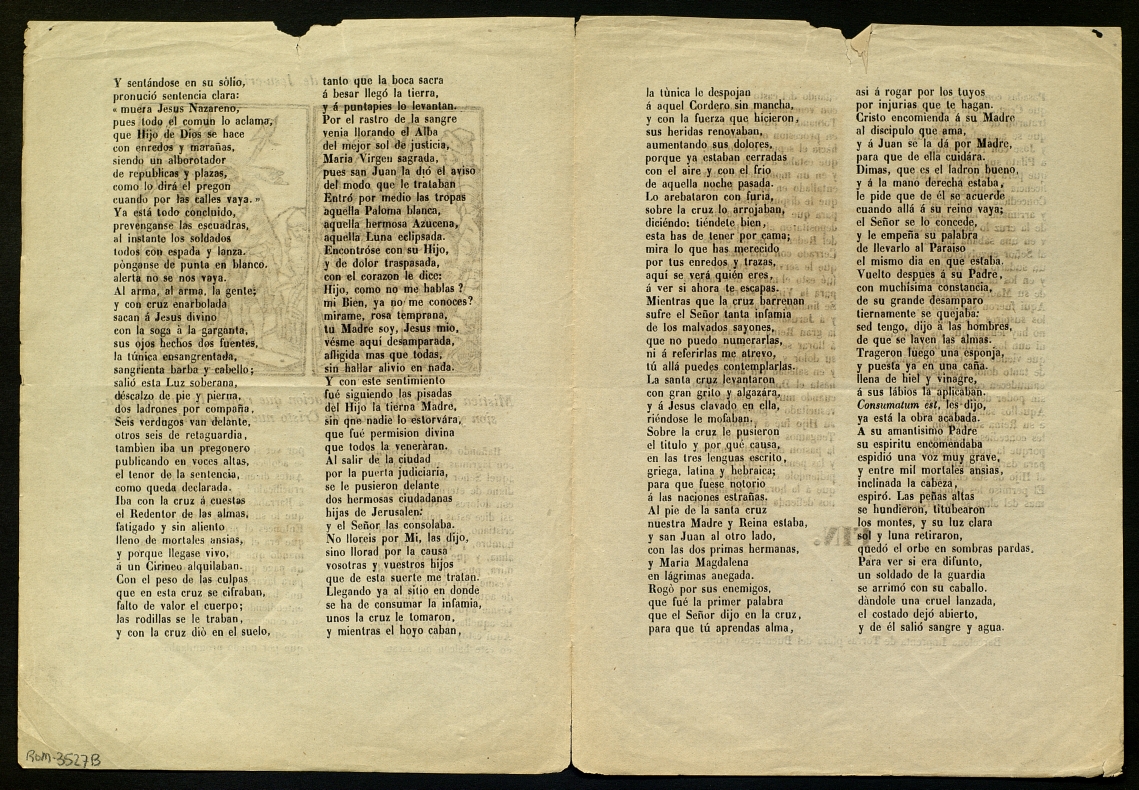 Y sentándose en su sòlio,
pronució sentencia clara:
« muera Jesus Nazareno,
pues todo el comun lo aclama,
que Hijo de Dios se hace
con enredos y marañas,
siendo un alborotador
de republicas y plazas,
como lo dirá el pregon
cuando por las calles vaya. »
Ya está todo concluido,
prevenganse las escuadras,
al instante los soldados
todos con espada y lanza.
pónganse de punta en blanco.
alerta no se nos vaya.
Al arma, al arma, la gente;
y con cruz enarbolada
sacan á Jesus divino
con la soga à la garganta,
sus ojos hechos dos fuentes,
la túnica ensangrentada,
sangrienta barba y cabello;
salió esta Luz soberana,
déscalzo de pie y pierna,
dos ladrones por compaña,
Seis verdugos van delante,
otros seis de retaguardia,
tambien iba un pregonero
publicando en voces altas,
el tenor de la sentencia,
como queda declarada.
Iba con la cruz á cuestas
el Redentor de las almas,
fatigado y sin aliento
lleno de mortales ansias,
y porque llegase vivo,
á un Cirineo alquilaban.
Con el peso de las culpas
que en esta cruz se cifraban,
falto de valor el cuerpo;
las rodillas se le traban,
y con la cruz diò en el suelo,
tanto que la boca sacra
á besar llegó la tierra,
y á puntapies lo levantan.
Por el rastro de la sangre
venia llorando el Alba
del mejor sol de justicia,
Maria Virgen sagrada,
pues san Juan la dió el aviso
del modo que le trataban
Entró por medio las tropas
aquella Paloma blanca,
aquella hermosa Azucena,
aquella Luna eclipsada.
Encontróse con su Hijo,
y de dolor traspasada,
con el corazon le dice:
Hijo, como no me hablas ?
mi Bien, ya no me conoces?
mirame, rosa temprana,
tu Madre soy, Jesus mio,
vésme aquí desamparada,
afligida mas que todas,
sin hallar alivio en nada.
Y con este sentimiento
fué siguiendo las pisadas
del Hijo la tierna Madre,
sin que nadie lo estorvára,
que fué permision divina
que todos la veneràran.
Al salir de la ciudad
por la puerta judiciaria,
se le pusieron delante
dos hermosas ciudadanas
hijas de Jerusalen:
y el Señor las consolaba.
No lloreis por Mi, las dijo,
sino llorad por la causa
vosotras y vuestros hijos
que de esta suerte me tratan.
Llegando ya al sitio en donde
se ha de consumar la infamia,
unos la cruz le tomaron,
y mientras el hoyo caban,
la tùnica le despojan
á aquel Cordero sin mancha,
y con la fuerza que hicieron,
sus heridas renovaban,
aumentando sus dolores,
porque ya estaban cerradas
con el aire y con el frio
de aquella noche pasada.
Lo arebataron con furia,
sobre la cruz lo arrojaban,
diciéndo: tiéndete bien,
esta has de tener por cama;
mira lo que has merecido
por tus enredos y trazas,
aqui se verá quién eres,
á ver si ahora te escapas.
Mientras que la cruz barrenan
sufre el Señor tanta infamia
de los malvados sayones,
que no puedo numerarlas,
ni á referirlas me atrevo,
tú allá puedes contemplarlas.
La santa cruz levantaron
con gran grito y algazára,
y á Jesus clavado en ella,
riéndose le mofaban.
Sobre la cruz le pusieron
el titulo y por qué causa,
en las tres lenguas escrito,
griega, latina y hebraica;
para que fuese notorio
á las naciones estrañas.
Al pie de la santa cruz
nuestra Madre y Reina estaba,
y san Juan al otro lado,
con las dos primas hermanas,
y Maria Magdalena
en lágrimas anegada.
Rogò por sus enemigos,
que fué la primer palabra
que el Señor dijo en la cruz,
para que tú aprendas alma,
asi á rogar por los tuyos
por injurias que te hagan.
Cristo encomienda á su Madre
al discipulo que ama,
y á Juan se la dá por Madre,
para que de ella cuidára.
Dimas, que es el ladron bueno,
y á la mano derecha estaba,
le pide que de él se acuerde
cuando allá á su reino vaya;
el Señor se lo concede,
y le empeña su palabra
de llevarlo al Paraiso
el mismo dia en que estaba.
Vuelto despues á su Padre,
con muchisima constancia,
de su grande desamparo
tiernamente se quejaba:
sed tengo, dijo á las hombres,
de que se laven las almas.
Trageron luego una esponja,
y puesta ya en una caña.
llena de hiel y vinagre,
á sus lábios la aplicaban.
Consumatum est, les dijo,
ya está la obra acabada.
A su amantisimo Padre
su espiritu encomendaba
espidió una voz muy grave,
y entre mil mortales ansias,
inclinada la cabeza,
espiró. Las peñas altas
se hundieron, titubearon
los montes, y su luz clara
sol y luna retiraron,
quedó el orbe en sombras pardas.
Para ver si era difunto,
un soldado de la guardia
se arrimó con su caballo.
dàndole una cruel lanzada,
el costado dejó abierto,
y de él salió sangre y agua.
ROM-3527B